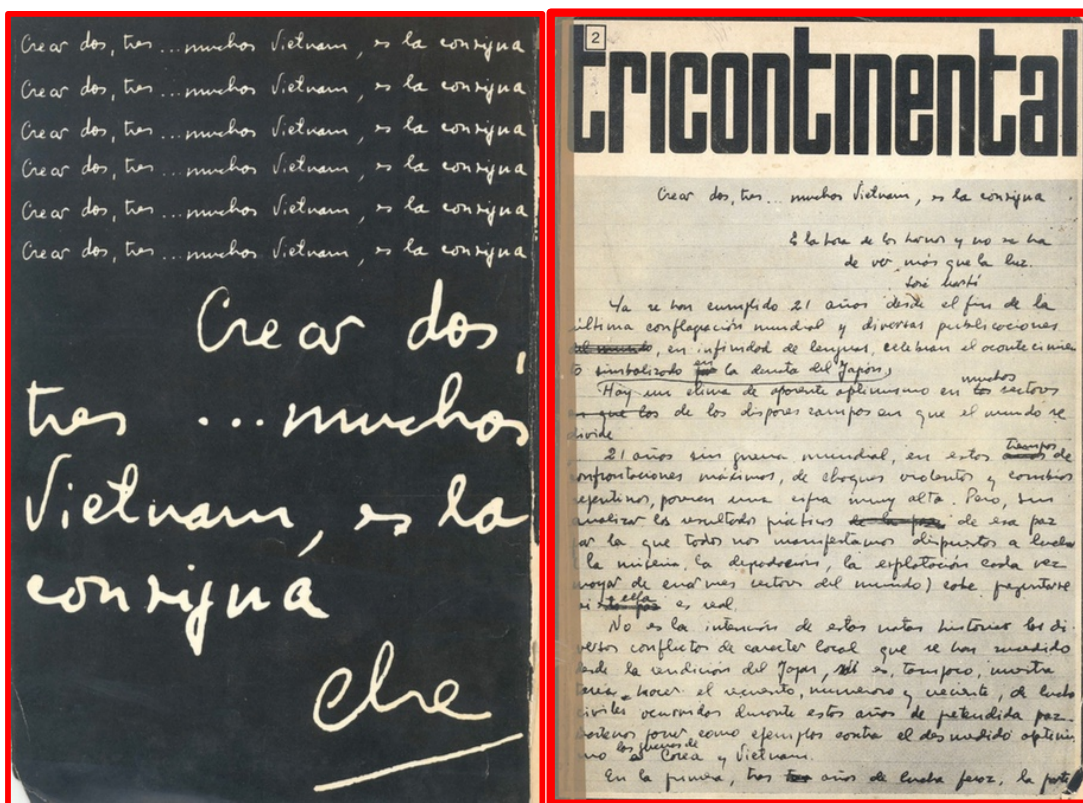 Crear dos, tres ... muchos Vietnam, es la consigna
Crear dos, tres ... muchos Vietnam, es la consigna
Crear dos, tres ... muchos Vietnam, es la consigna
Crear dos, tres ... muchos Vietnam, es la consigna
Crear dos, tres ... muchos Vietnam, es la consigna
Crear dos, tres ... muchos Vietnam, es la consigna
Crear dos,
tres ... muchos
Vietnam, es la
consigna
Che
2
tricontinental
Crear dos, tres ... muchos Vietnam, es la consigna.
Es la hora de los hornos y no se ha
de ver más que la luz.
José Martí
Ya se han cumplido 21 años desde el fin de la
última conflagración mundial y diversas publicaciones
, en infinidad de lenguas, celebran el acontecimien
to simbolizado en la derrota del Japón,
Hay un clima de aparente optimismo en muchos sectores
de los dispares campos en que el mundo se
divide
21 años sin guerra mundial, en estos tiempos de
confrontaciones máximas, de choques violentos y cambios
repentinos, parecen una cifra muy alta. Pero, sin
analizar los resultados prácticos de esa paz
por la que todos nos manifestamos dispuestos a luchar
(la miseria, la degradación, la explotación cada vez
mayor de enormes sectores del mundo) cabe preguntarse
si ella es real.
No es la intención de estas notas historiar los di-
versos conflictos de caracter local que se han sucedido
desde la rendición del Japón, es, tampoco, nuestra
tarea, hacer el recuento, numeroso y creciente, de luchas
civiles ocurridas durante estos años de pretendida paz.
Bástenos poner como ejemplos contra el desmedido optimis
mo las guerras de Corea y Vietnam.
En la primera, tras años de lucha feroz, la parte